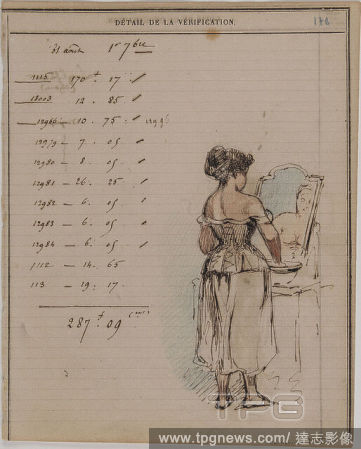 DÉTAIL DE LA VÉRIFICATION. 176
31 août 1er 7bre
1115 170 f 17
18003 12 . 85
12966 — 10 . 75
12979 — 7 . 05
12980 — 8 . 05
12981 — 26 . 25
12982 — 6 . 05
12983 — 6 . 05
12984 — 6 . 05
1112 — 14 . 65
113 — 19 . 17
287 f 09
TPG
www.tpgnews.com / 達志影像